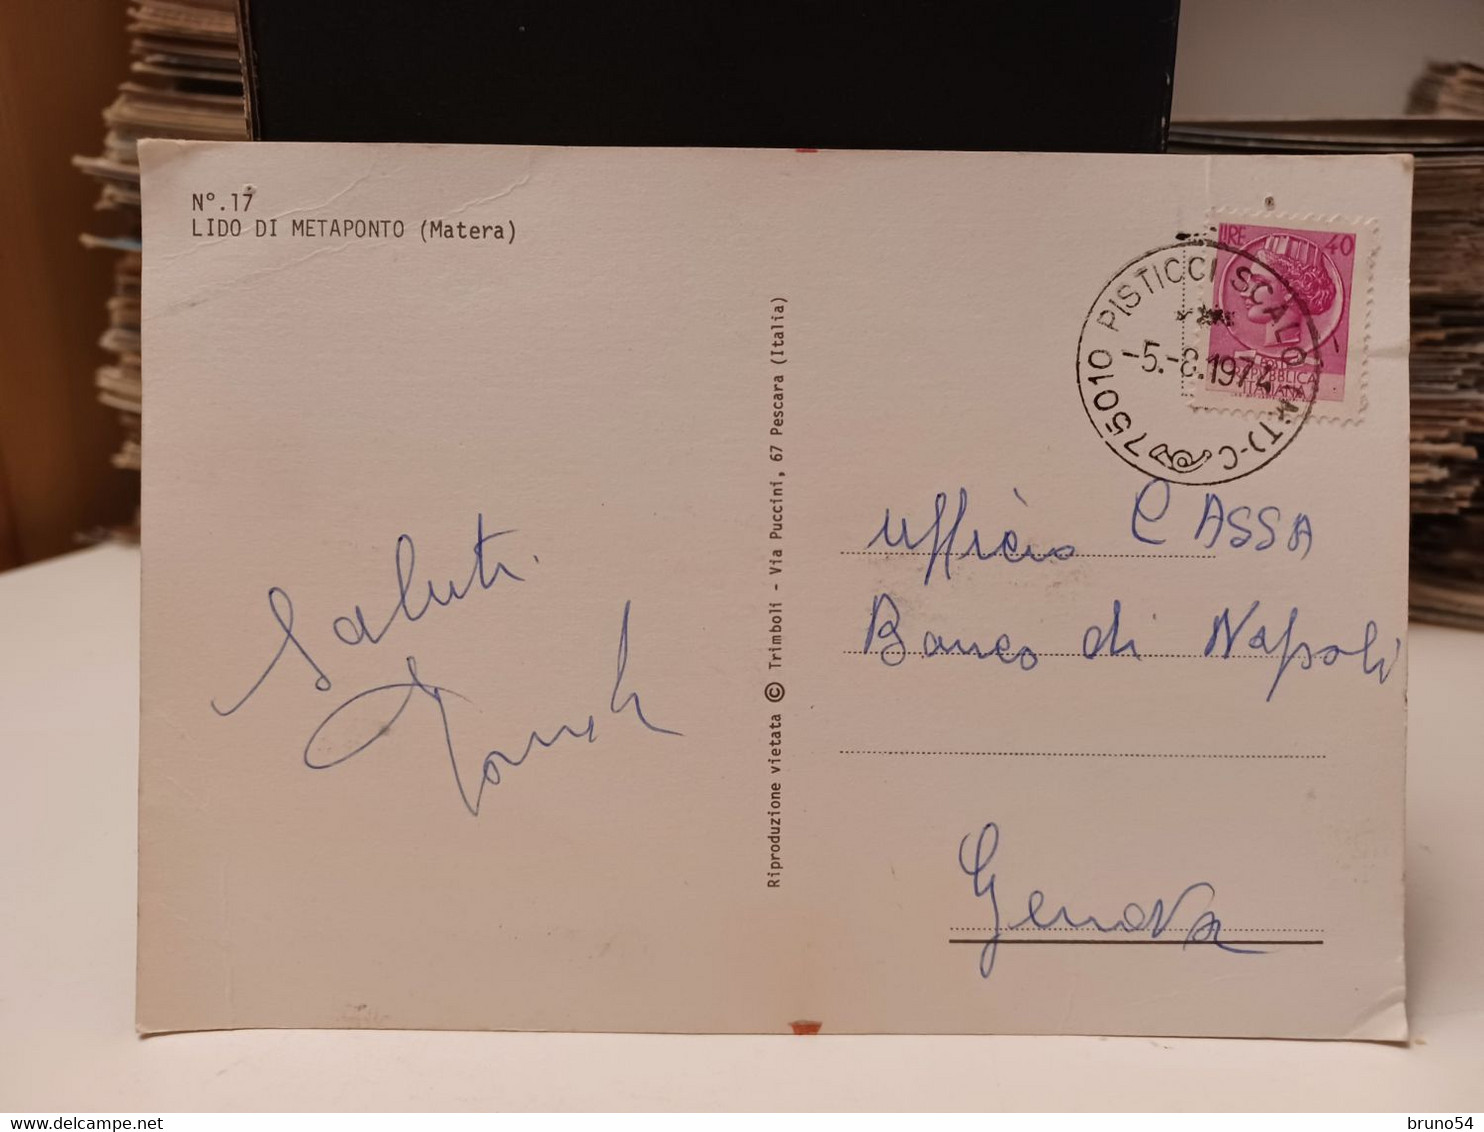 N°.17
LIDO DI METAPONTO (Matera)
LIRE 40
POSTE
REPUBBLICA
ITALIANA
75010 PISTICCI SCALO (MT)-C
-5.-8.1974
Riproduzione vietata © Trimboli - Via Puccini, 67 Pescara (Italia)
Saluti
Ufficio CASSA
Banco di Napoli
Genova
bruno54
www.delcampe.net